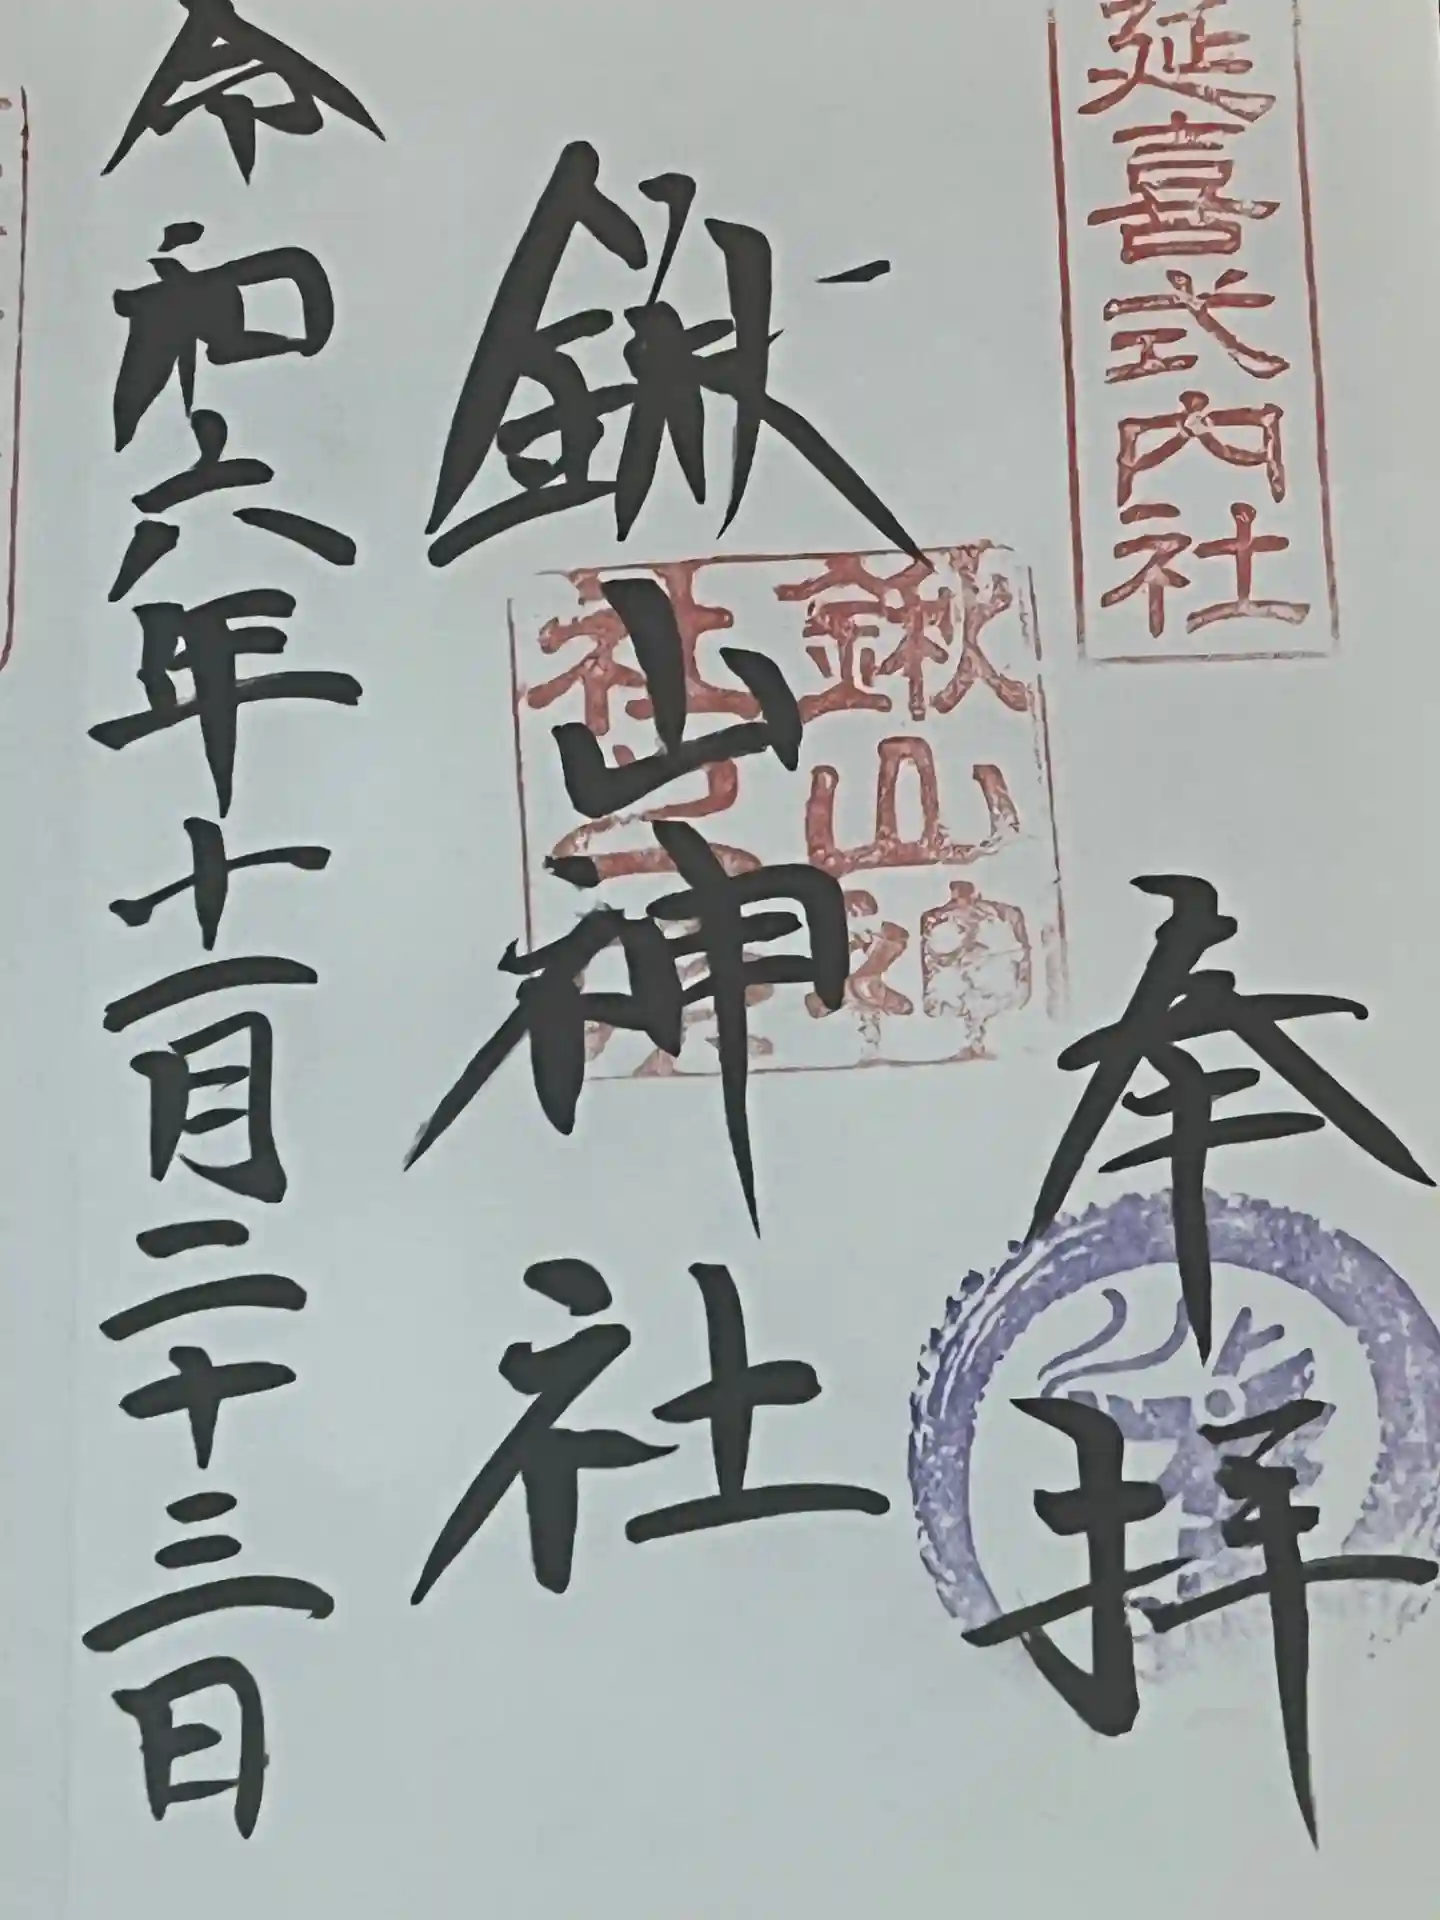 延喜式内社
奉拝
鍬山神社
鍬山神
社之
令和六年十一月二十三日